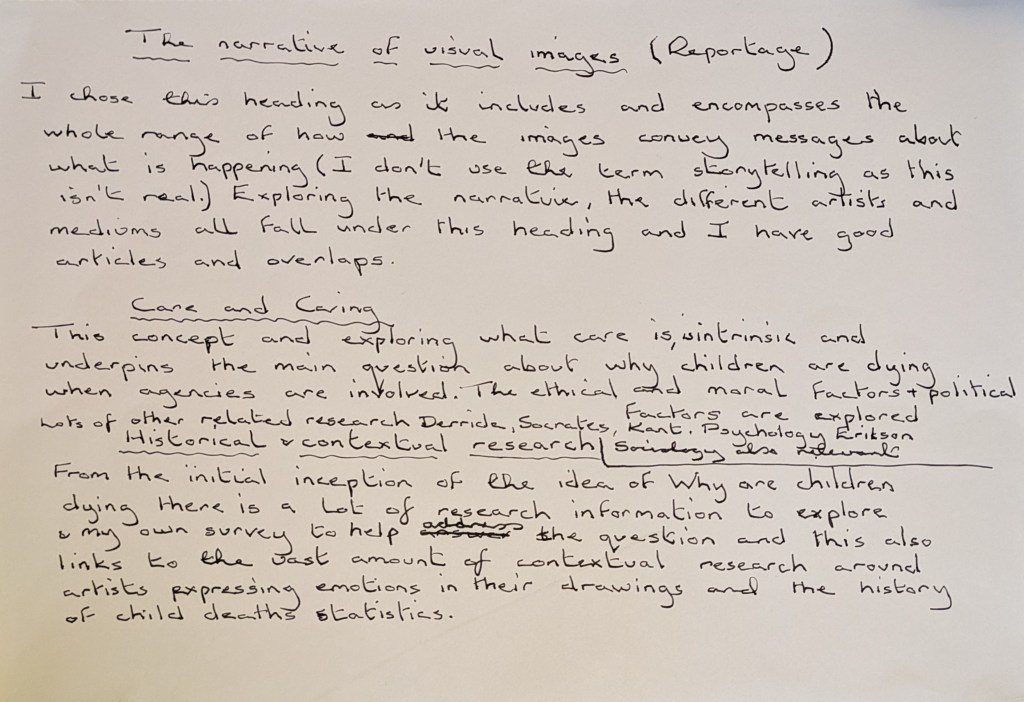 The narrative of visual images (Reportage)
I chose this heading as it includes and encompasses the
whole range of how the images convey messages about
what is happening (I don't use the term storytelling as this
isn't real.) Exploring the narrative, the different artists and
mediums all fall under this heading and I have good
articles and overlaps.
Care and Caring
This concept and exploring what care is, intrinsic and
underpins the main question about why children are dying
when agencies are involved. The ethical and moral factors + political
Factors are explored
Lots of other related research Derrida, Socrates, Kant. Psychology Erikson
Historical & contextual research Sociology also relevant
From the initial inception of the idea of Why are children
dying there is a lot of research information to explore
& my own survey to help address the question and this also
links to the vast amount of contextual research around
artists expressing emotions in their drawings and the history
of child deaths statistics.